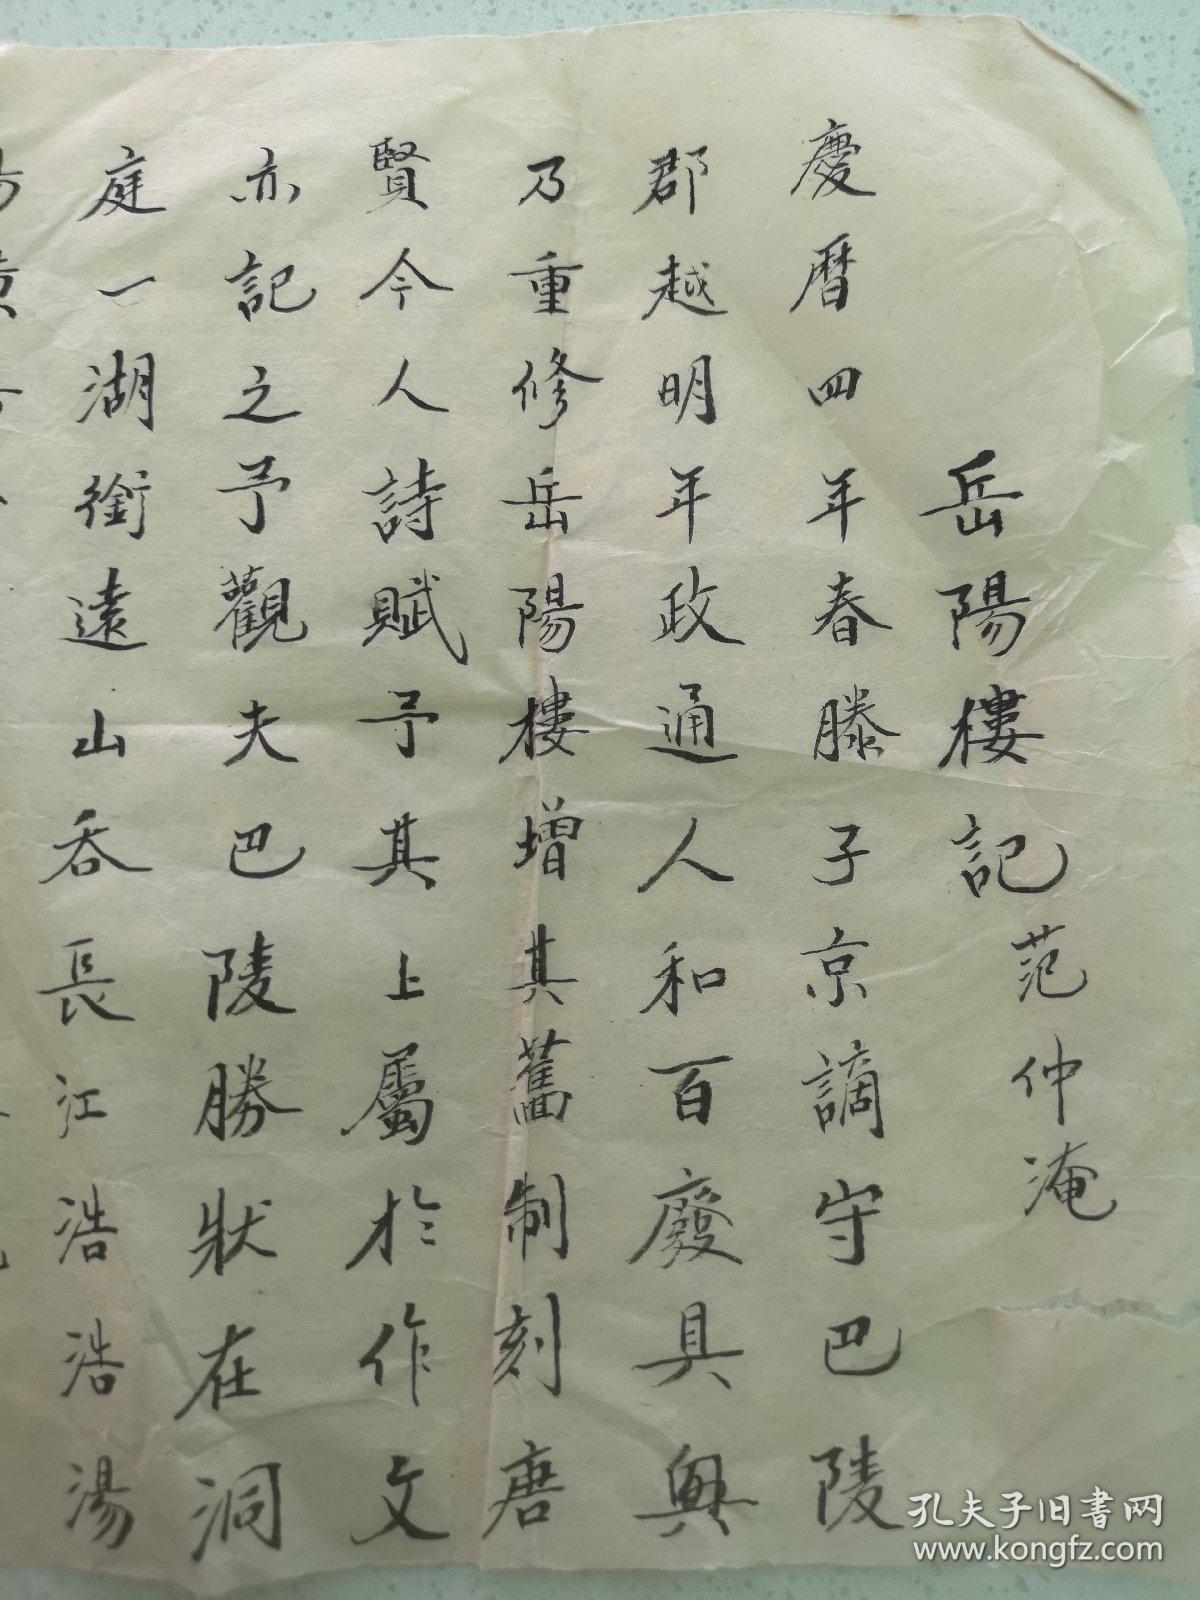 岳陽樓記范仲淹
慶曆四年春滕子京謫守巴陵
郡越明年政通人和百廢具興
乃重修岳陽樓增其舊制刻唐
賢今人詩賦予其上屬於作文
亦記之予觀夫巴陵勝狀在洞
庭一湖銜遠山吞長江浩浩湯
孔夫子旧书网
www.kongfz.com